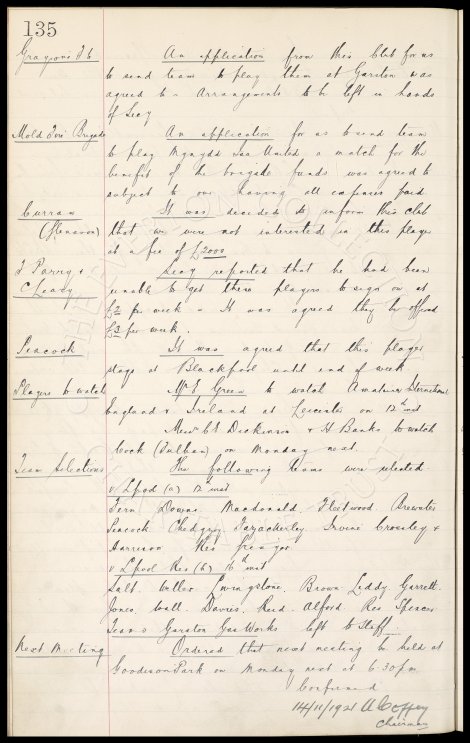 135
Graysons F.C. An application from this Club for us
to send team to play them at Garston was
agreed to - Arrangements to be left in hands
of Secy
Mold Fire Brigade An application for us to send team
to play Mynydd Isa United a match for the
benefit of the brigade funds was agreed to
subject to our having all expenses paid
Curran It was decided to inform this club
that we were not interested in this player
at a fee of £2000
J Parry & Secy reported that he had been
C Leavy unable to get these players to sign on at
per week - It was agreed they be offered
£3 per week.
Peacock It was agreed that this player
stage at Blackpool until end of week
Players to watch Mr E Green to watch Amateur International
England v Ireland at Leicester on 12th inst
Messrs Dickinson & H Banks to watch
Cock (Fulham) on Monday next.
Team Selections The following teams were selected
v L'pool (a) 12th inst
Fern Downs Macdonald Fleetwood Brewster
Peacock Chedgzoy Fazackerley Irvine Crossley &
Harrison Res
v L'pool Res (h) inst
Salt. Weller Livingstone. Brown Leddy Garrett.
Jones. Wall. Davies. Reid. Alford Res Spencer
Team v Garston Gas Works left to Staff.
Next Meeting Ordered that next meeting be held at
Goodison Park on Monday next at 6.30 p.m.
Confirmed
14/11/1921 A Coffey
Chairman